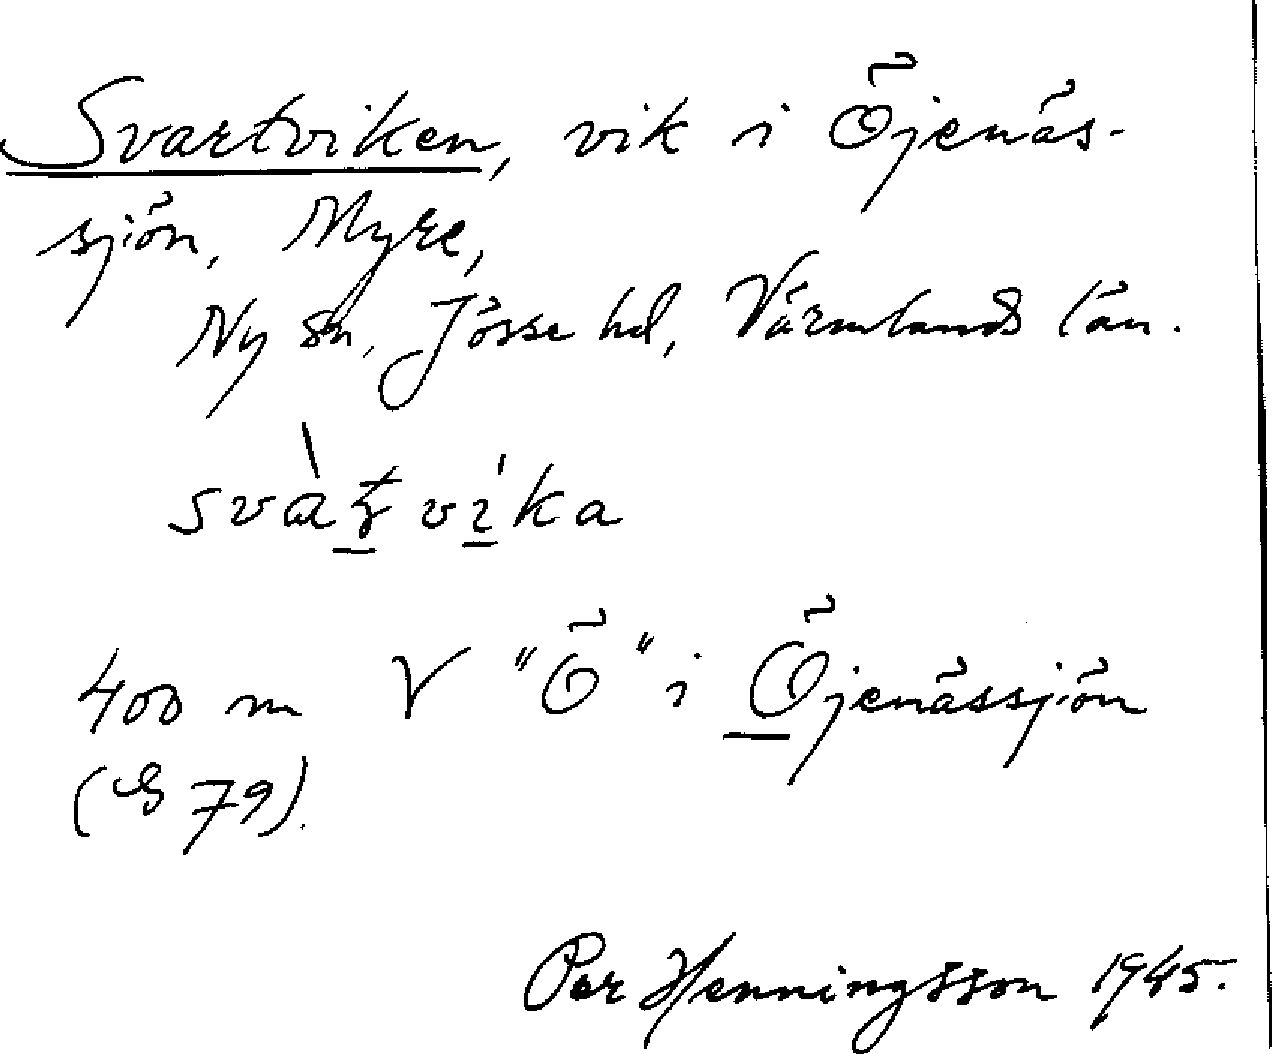 Svartviken, vik i Öjenäs-
sjön, Myre,
Ny sn, Jösse hd, Värmlands län.
400 m V "Ö" i Öjenässjön
(S 79).
Per Henningsson 1945.